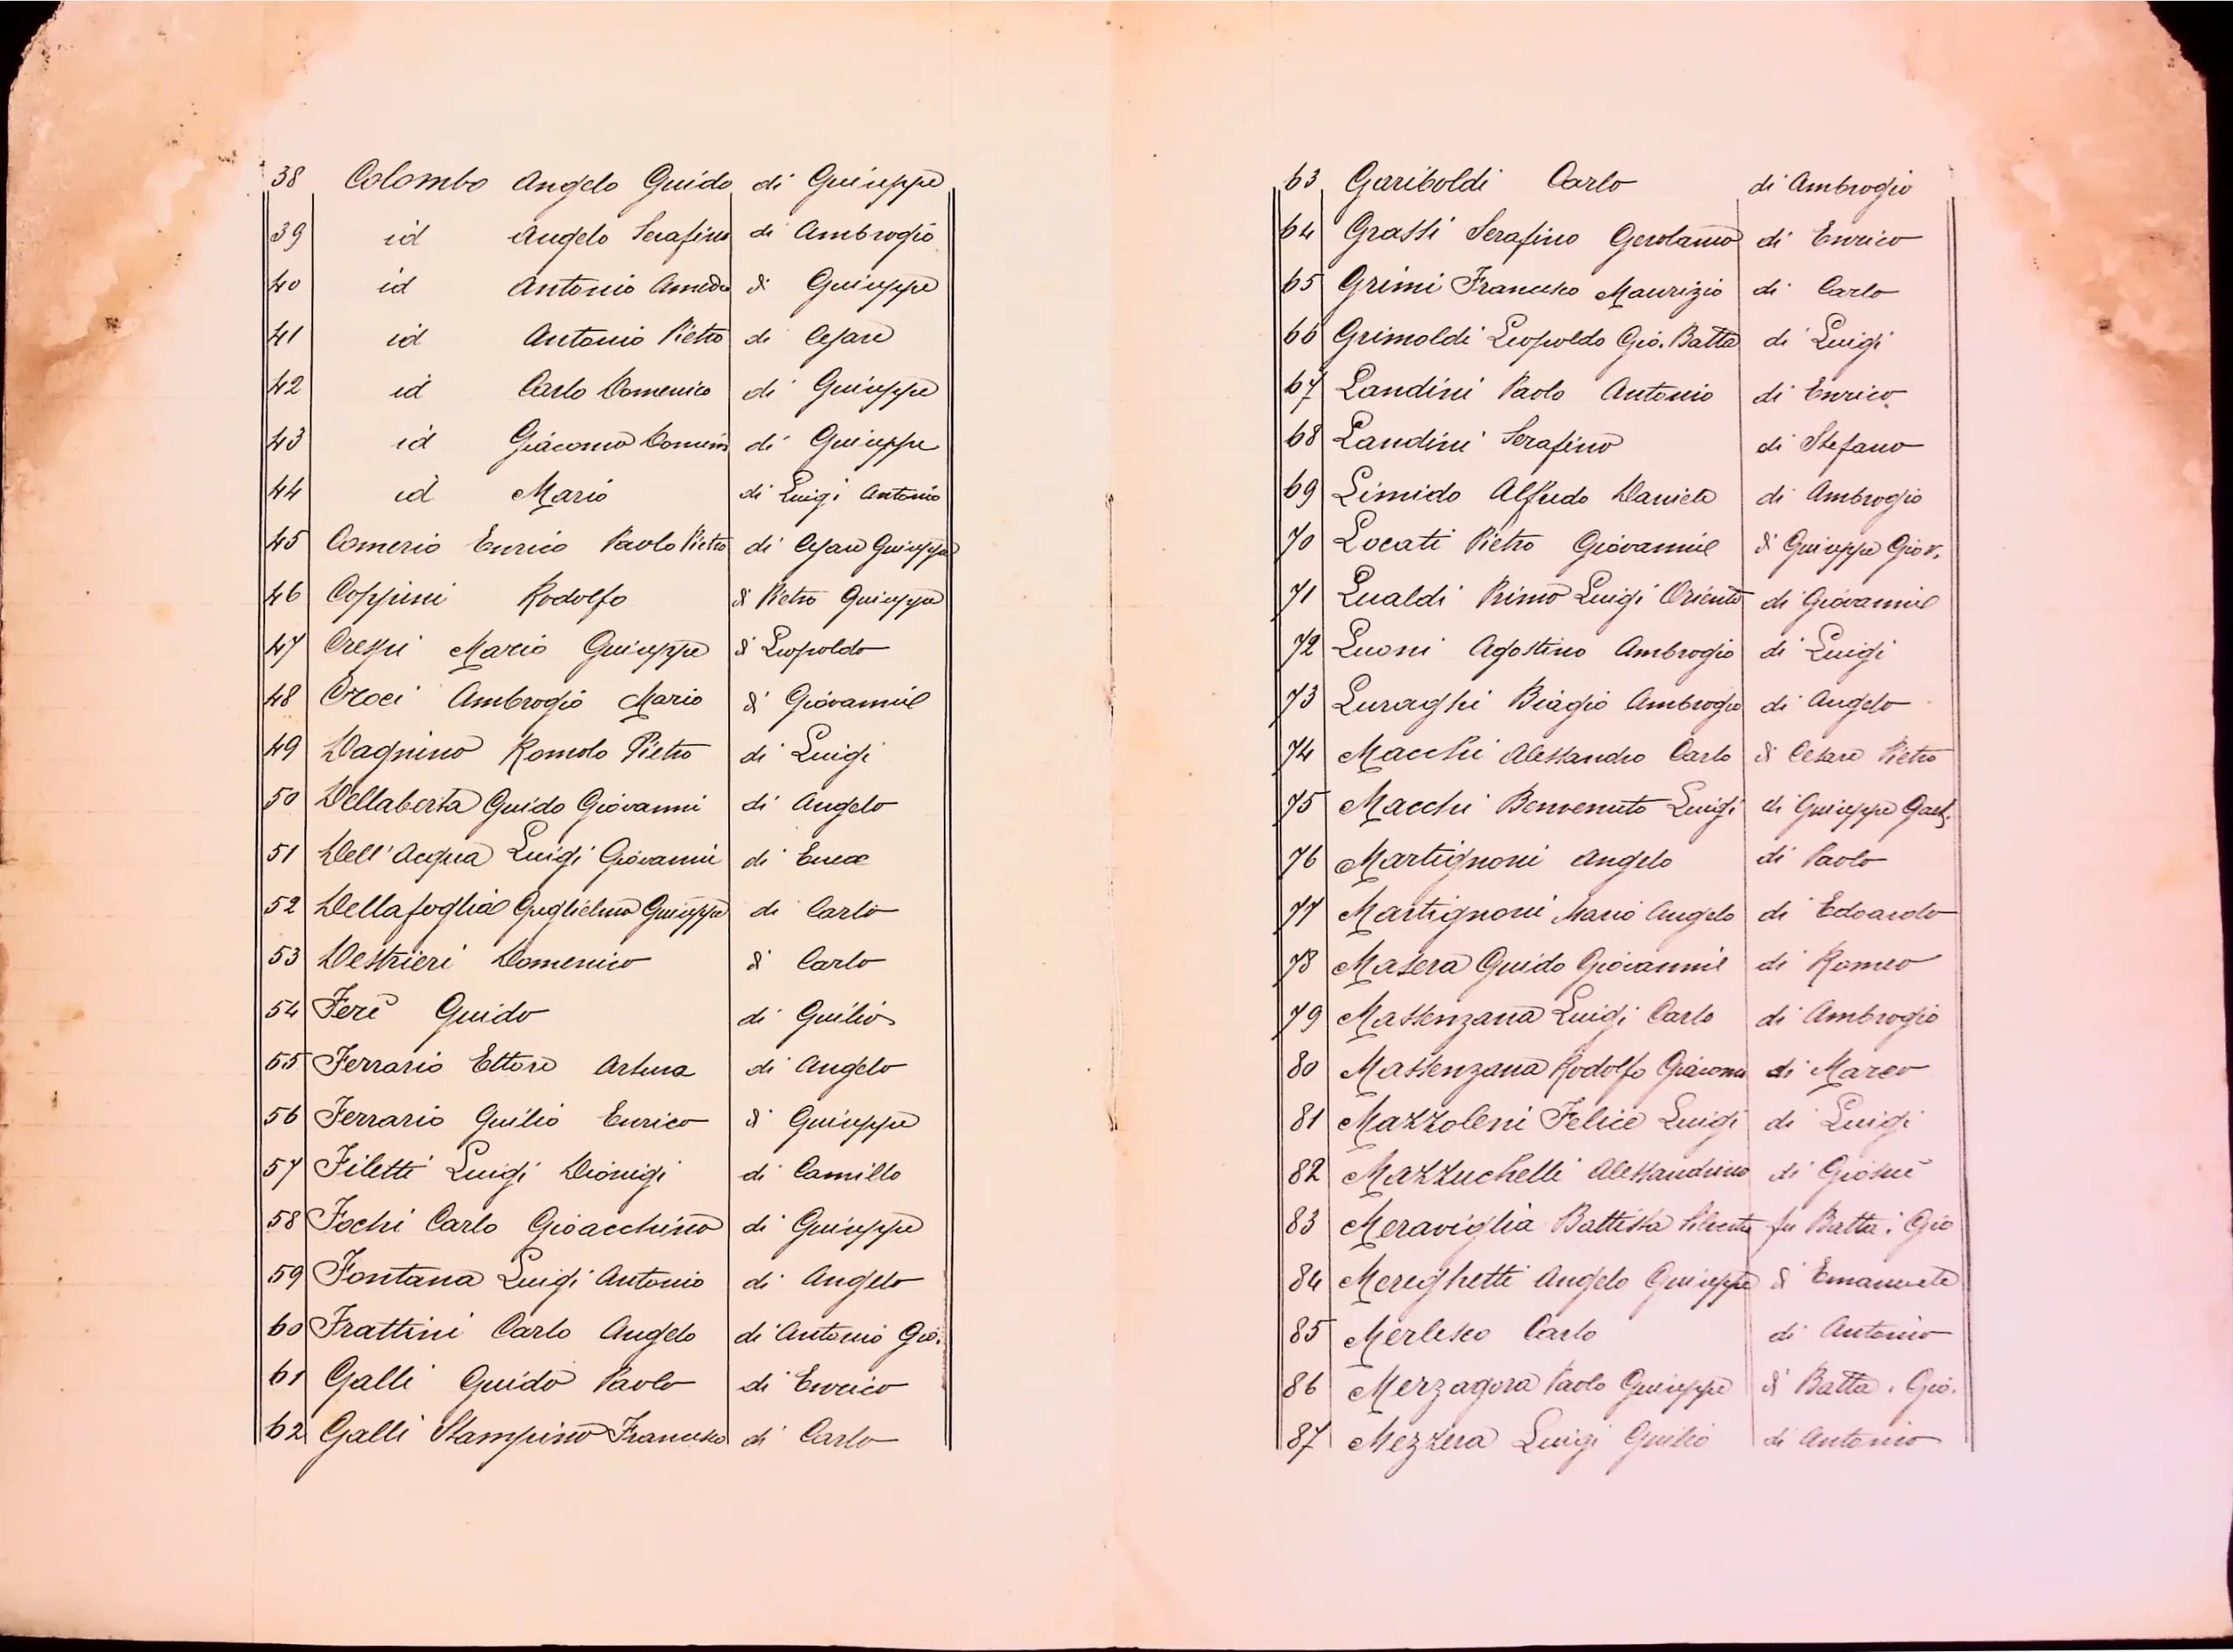 38 Colombo Angelo Guido di Giuseppe
39 id Angelo Serafino di Ambrogio
40 id Antonio Amedeo di Giuseppe
41 id Antonio Pietro di Cesare
42 id Carlo Domenico di Giuseppe
43 id Giacomo Domenico di Giuseppe
44 id Mario di Luigi Antonio
45 Comerio Enrico Paolo Pietro di Cesare Giuseppe
46 Coppini Rodolfo di Pietro Giuseppe
47 Crespi Mario Giuseppe di Leopoldo
48 Croci Ambrogio Mario di Giovanni
49 Dagnino Romolo Pietro di Luigi
50 Dellaberta Guido Giovanni di Angelo
51 Dell'Acqua Luigi Giovanni di Enea
52 Dellafoglia Guglielmo Giuseppe di Carlo
53 Destrieri Domenico di Carlo
54 Ferè Guido di Giulio
55 Ferrario Ettore Arturo di Angelo
56 Ferrario Giulio Enrico di Giuseppe
57 Filetti Luigi Dionigi di Camillo
58 Fochi Carlo Gioacchino di Giuseppe
59 Fontana Luigi Antonio di Angelo
60 Frattini Carlo Angelo di Antonio Gio.
61 Galli Guido Paolo di Enrico
62 Galli Stampino Francesco di Carlo
63 Gariboldi Carlo di Ambrogio
64 Grassi Serafino Gerolamo di Enrico
65 Grimi Francesco Maurizio di Carlo
66 Grimoldi Leopoldo Gio. Batta di Luigi
67 Landini Paolo Antonio di Enrico
68 Landini Serafino di Stefano
69 Limido Alfredo Daniele di Ambrogio
70 Locati Pietro Giovanni di Giuseppe Giov.
71 Lualdi Primo Luigi Oreste di Giovanni
72 Luoni Agostino Ambrogio di Luigi
73 Luraghi Biagio Ambrogio di Angelo
74 Macchi Alessandro Carlo di Cesare Pietro
75 Macchi Benvenuto Luigi di Giuseppe Gaet.
76 Martignoni Angelo di Paolo
77 Martignoni Mario Angelo di Edoardo
78 Masera Guido Giovanni di Romeo
79 Massenzana Luigi Carlo di Ambrogio
80 Massenzana Rodolfo Giacomo di Marco
81 Mazzoleni Felice Luigi di Luigi
82 Mazzuchelli Alessandrino di Giosuè
83 Meraviglia Battista fu Batta. Gio
84 Mereghetti Angelo Giuseppe di Emanuele
85 Merlesco Carlo di Antonio
86 Merzagora Paolo Giuseppe di Batta. Gio.
87 Mezzera Luigi Giulio di Antonio